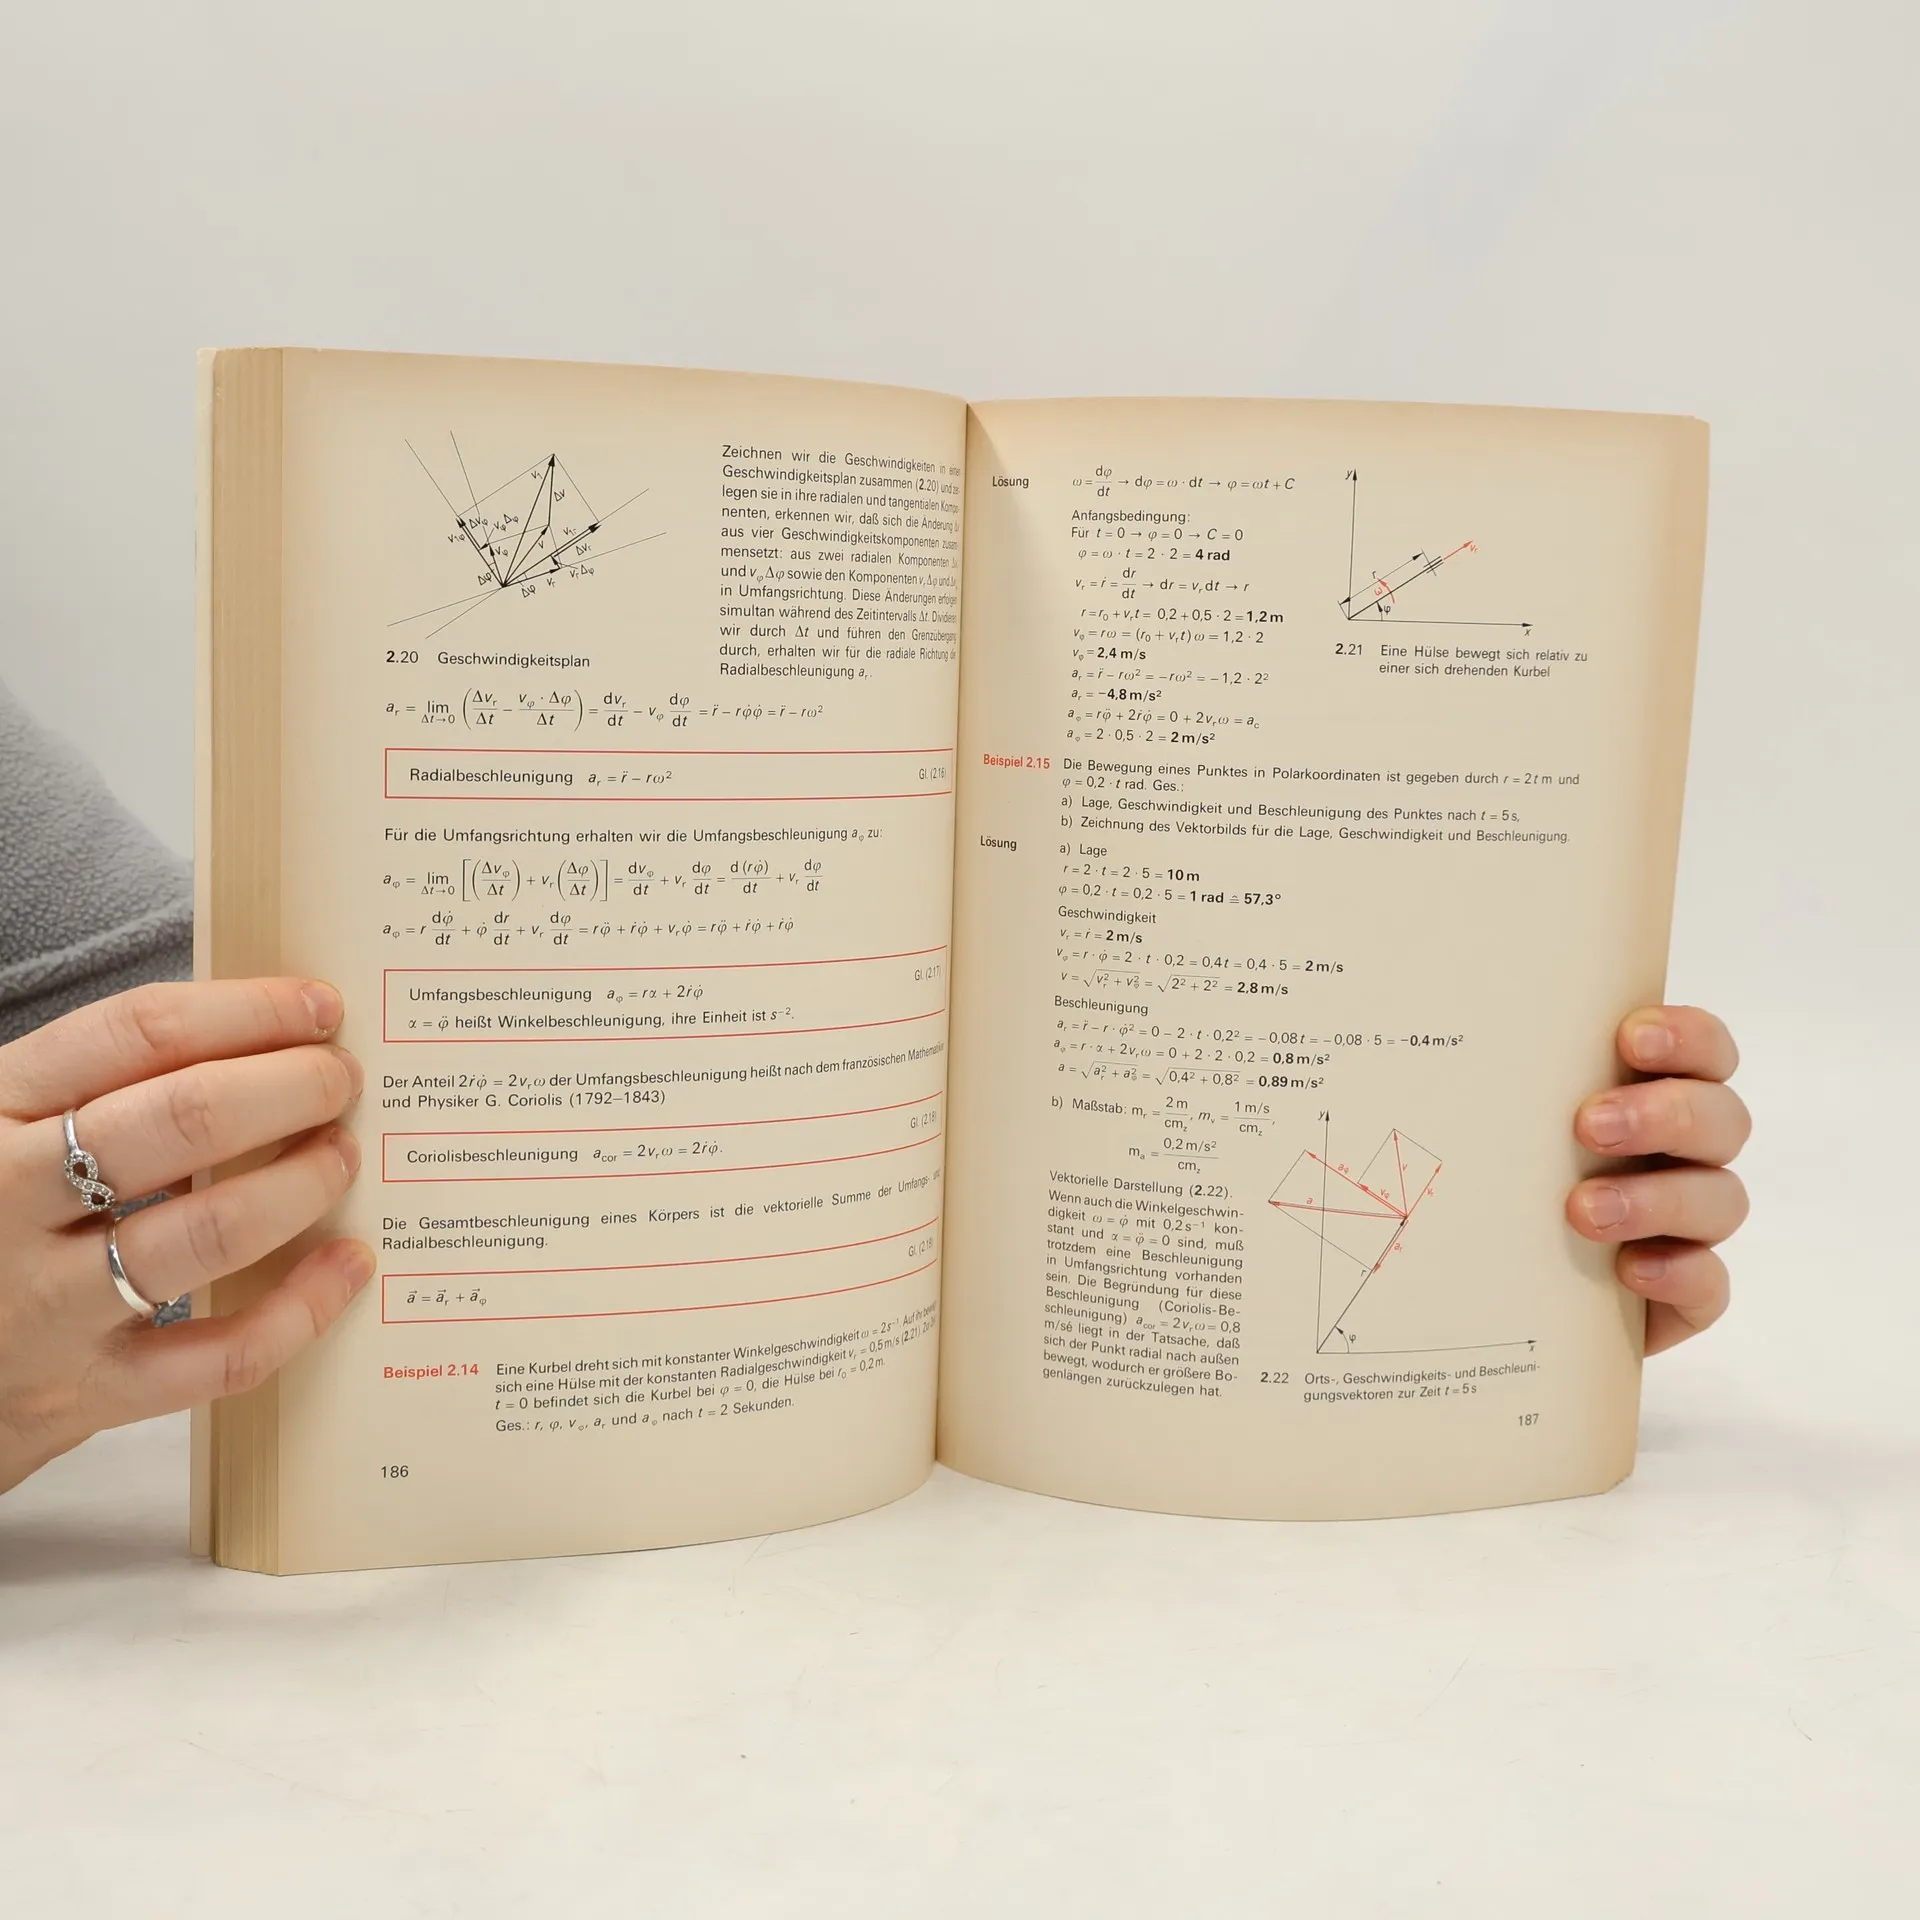 Zeichnen wir die Geschwindigkeiten in
Geschwindigkeitsplan zusammen (2.20) und
legen sie in ihre radialen und tangentialen
nenten, erkennen wir, daß sich die Änderung
aus vier Geschwindigkeitskomponenten
mensetzt: aus zwei radialen Komponenten
und vφ Δφ sowie den Komponenten vr Δφ und
in Umfangsrichtung. Diese Änderungen erfolgen
simultan während des Zeitintervalls Δt.
wir durch Δt und führen den Grenzübergang
durch, erhalten wir für die radiale Richtung
Radialbeschleunigung ar.
v1 Δv Δvφ vφ Δφ v1φ vφ v v1r Δvr Δφ Δφ vr vr Δφ
2.20 Geschwindigkeitsplan
ar = lim Δt→0 (Δvr/Δt − vφ · Δφ/Δt) = dvr/dt − vφ dφ/dt = r̈ − rφ̇φ̇ = r̈ − rω²
Radialbeschleunigung ar = r̈ − rω² Gl. (2.16)
Für die Umfangsrichtung erhalten wir die Umfangsbeschleunigung aφ zu:
aφ = lim Δt→0 [(Δvφ/Δt) + vr (Δφ/Δt)] = dvφ/dt + vr dφ/dt = d(rφ̇)/dt + vr dφ/dt
aφ = r dφ̇/dt + φ̇ dr/dt + vr dφ/dt = rφ̈ + ṙφ̇ + vrφ̇ = rφ̈ + ṙφ̇ + ṙφ̇
Gl. (2.17)
Umfangsbeschleunigung aφ = rα + 2ṙφ̇
α = φ̈ heißt Winkelbeschleunigung, ihre Einheit ist s⁻².
Der Anteil 2ṙφ̇ = 2vrω der Umfangsbeschleunigung heißt nach dem französischen Mathematiker
und Physiker G. Coriolis (1792–1843)
Gl. (2.18)
Coriolisbeschleunigung acor = 2vrω = 2ṙφ̇.
Die Gesamtbeschleunigung eines Körpers ist die vektorielle Summe der Umfangs- und
Radialbeschleunigung.
Gl. (2.19)
a⃗ = a⃗r + a⃗φ
Beispiel 2.14 Eine Kurbel dreht sich mit konstanter Winkelgeschwindigkeit ω = 2s⁻¹. Auf ihr bewegt
sich eine Hülse mit der konstanten Radialgeschwindigkeit vr = 0,5m/s (2.21). Zu
t = 0 befindet sich die Kurbel bei φ = 0, die Hülse bei r0 = 0,2m.
Ges.: r, φ, vφ, ar und aφ nach t = 2 Sekunden.
186
Lösung ω = dφ/dt → dφ = ω · dt → φ = ωt + C
Anfangsbedingung:
Für t = 0 → φ = 0 → C = 0
φ = ω · t = 2 · 2 = 4 rad
vr = ṙ = dr/dt → dr = vr dt → r
r = r0 + vrt = 0,2 + 0,5 · 2 = 1,2 m
vφ = rω = (r0 + vrt) ω = 1,2 · 2
vφ = 2,4 m/s
ar = r̈ − rω² = −rω² = −1,2 · 2²
ar = −4,8 m/s²
aφ = rφ̈ + 2ṙφ̇ = 0 + 2vrω = ac
aφ = 2 · 0,5 · 2 = 2 m/s²
y r vr ω φ x
2.21 Eine Hülse bewegt sich relativ zu
einer sich drehenden Kurbel
Beispiel 2.15 Die Bewegung eines Punktes in Polarkoordinaten ist gegeben durch r = 2t m und
φ = 0,2 · t rad. Ges.:
a) Lage, Geschwindigkeit und Beschleunigung des Punktes nach t = 5s,
b) Zeichnung des Vektorbilds für die Lage, Geschwindigkeit und Beschleunigung.
Lösung a) Lage
r = 2 · t = 2 · 5 = 10 m
φ = 0,2 · t = 0,2 · 5 = 1 rad ≙ 57,3°
Geschwindigkeit
vr = ṙ = 2 m/s
vφ = r · φ̇ = 2 · t · 0,2 = 0,4t = 0,4 · 5 = 2 m/s
v = √(vr² + vφ²) = √(2² + 2²) = 2,8 m/s
Beschleunigung
ar = r̈ − r · φ̇² = 0 − 2 · t · 0,2² = −0,08t = −0,08 · 5 = −0,4 m/s²
aφ = r · α + 2vrω = 0 + 2 · 2 · 0,2 = 0,8 m/s²
a = √(ar² + aφ²) = √(0,4² + 0,8²) = 0,89 m/s²
b) Maßstab: mr = 2 m/cmz, mv = 1 m/s/cmz,
ma = 0,2 m/s²/cmz
Vektorielle Darstellung (2.22).
Wenn auch die Winkelgeschwin-
digkeit ω = φ̇ mit 0,2s⁻¹ kon-
stant und α = φ̈ = 0 sind, muß
trotzdem eine Beschleunigung
in Umfangsrichtung vorhanden
sein. Die Begründung für diese
Beschleunigung (Coriolis-Be-
schleunigung) acor = 2vrω = 0,8
m/sé liegt in der Tatsache, daß
sich der Punkt radial nach außen
bewegt, wodurch er größere Bo-
genlängen zurückzulegen hat.
y aφ v vφ vr a ar r φ x
2.22 Orts-, Geschwindigkeits- und Beschleuni-
gungsvektoren zur Zeit t = 5s
187